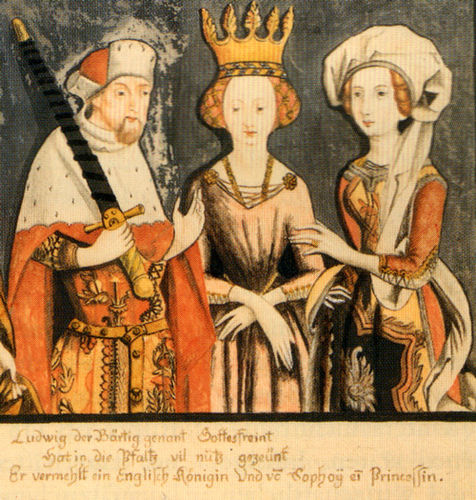 Ludwig der Bärtig genant Gottesfreint
Hat in die Pfaltz vil nütz gezeünt
Er vermehlt ein Englisch Königin Vnd võ Sophoÿ ei Princessin.